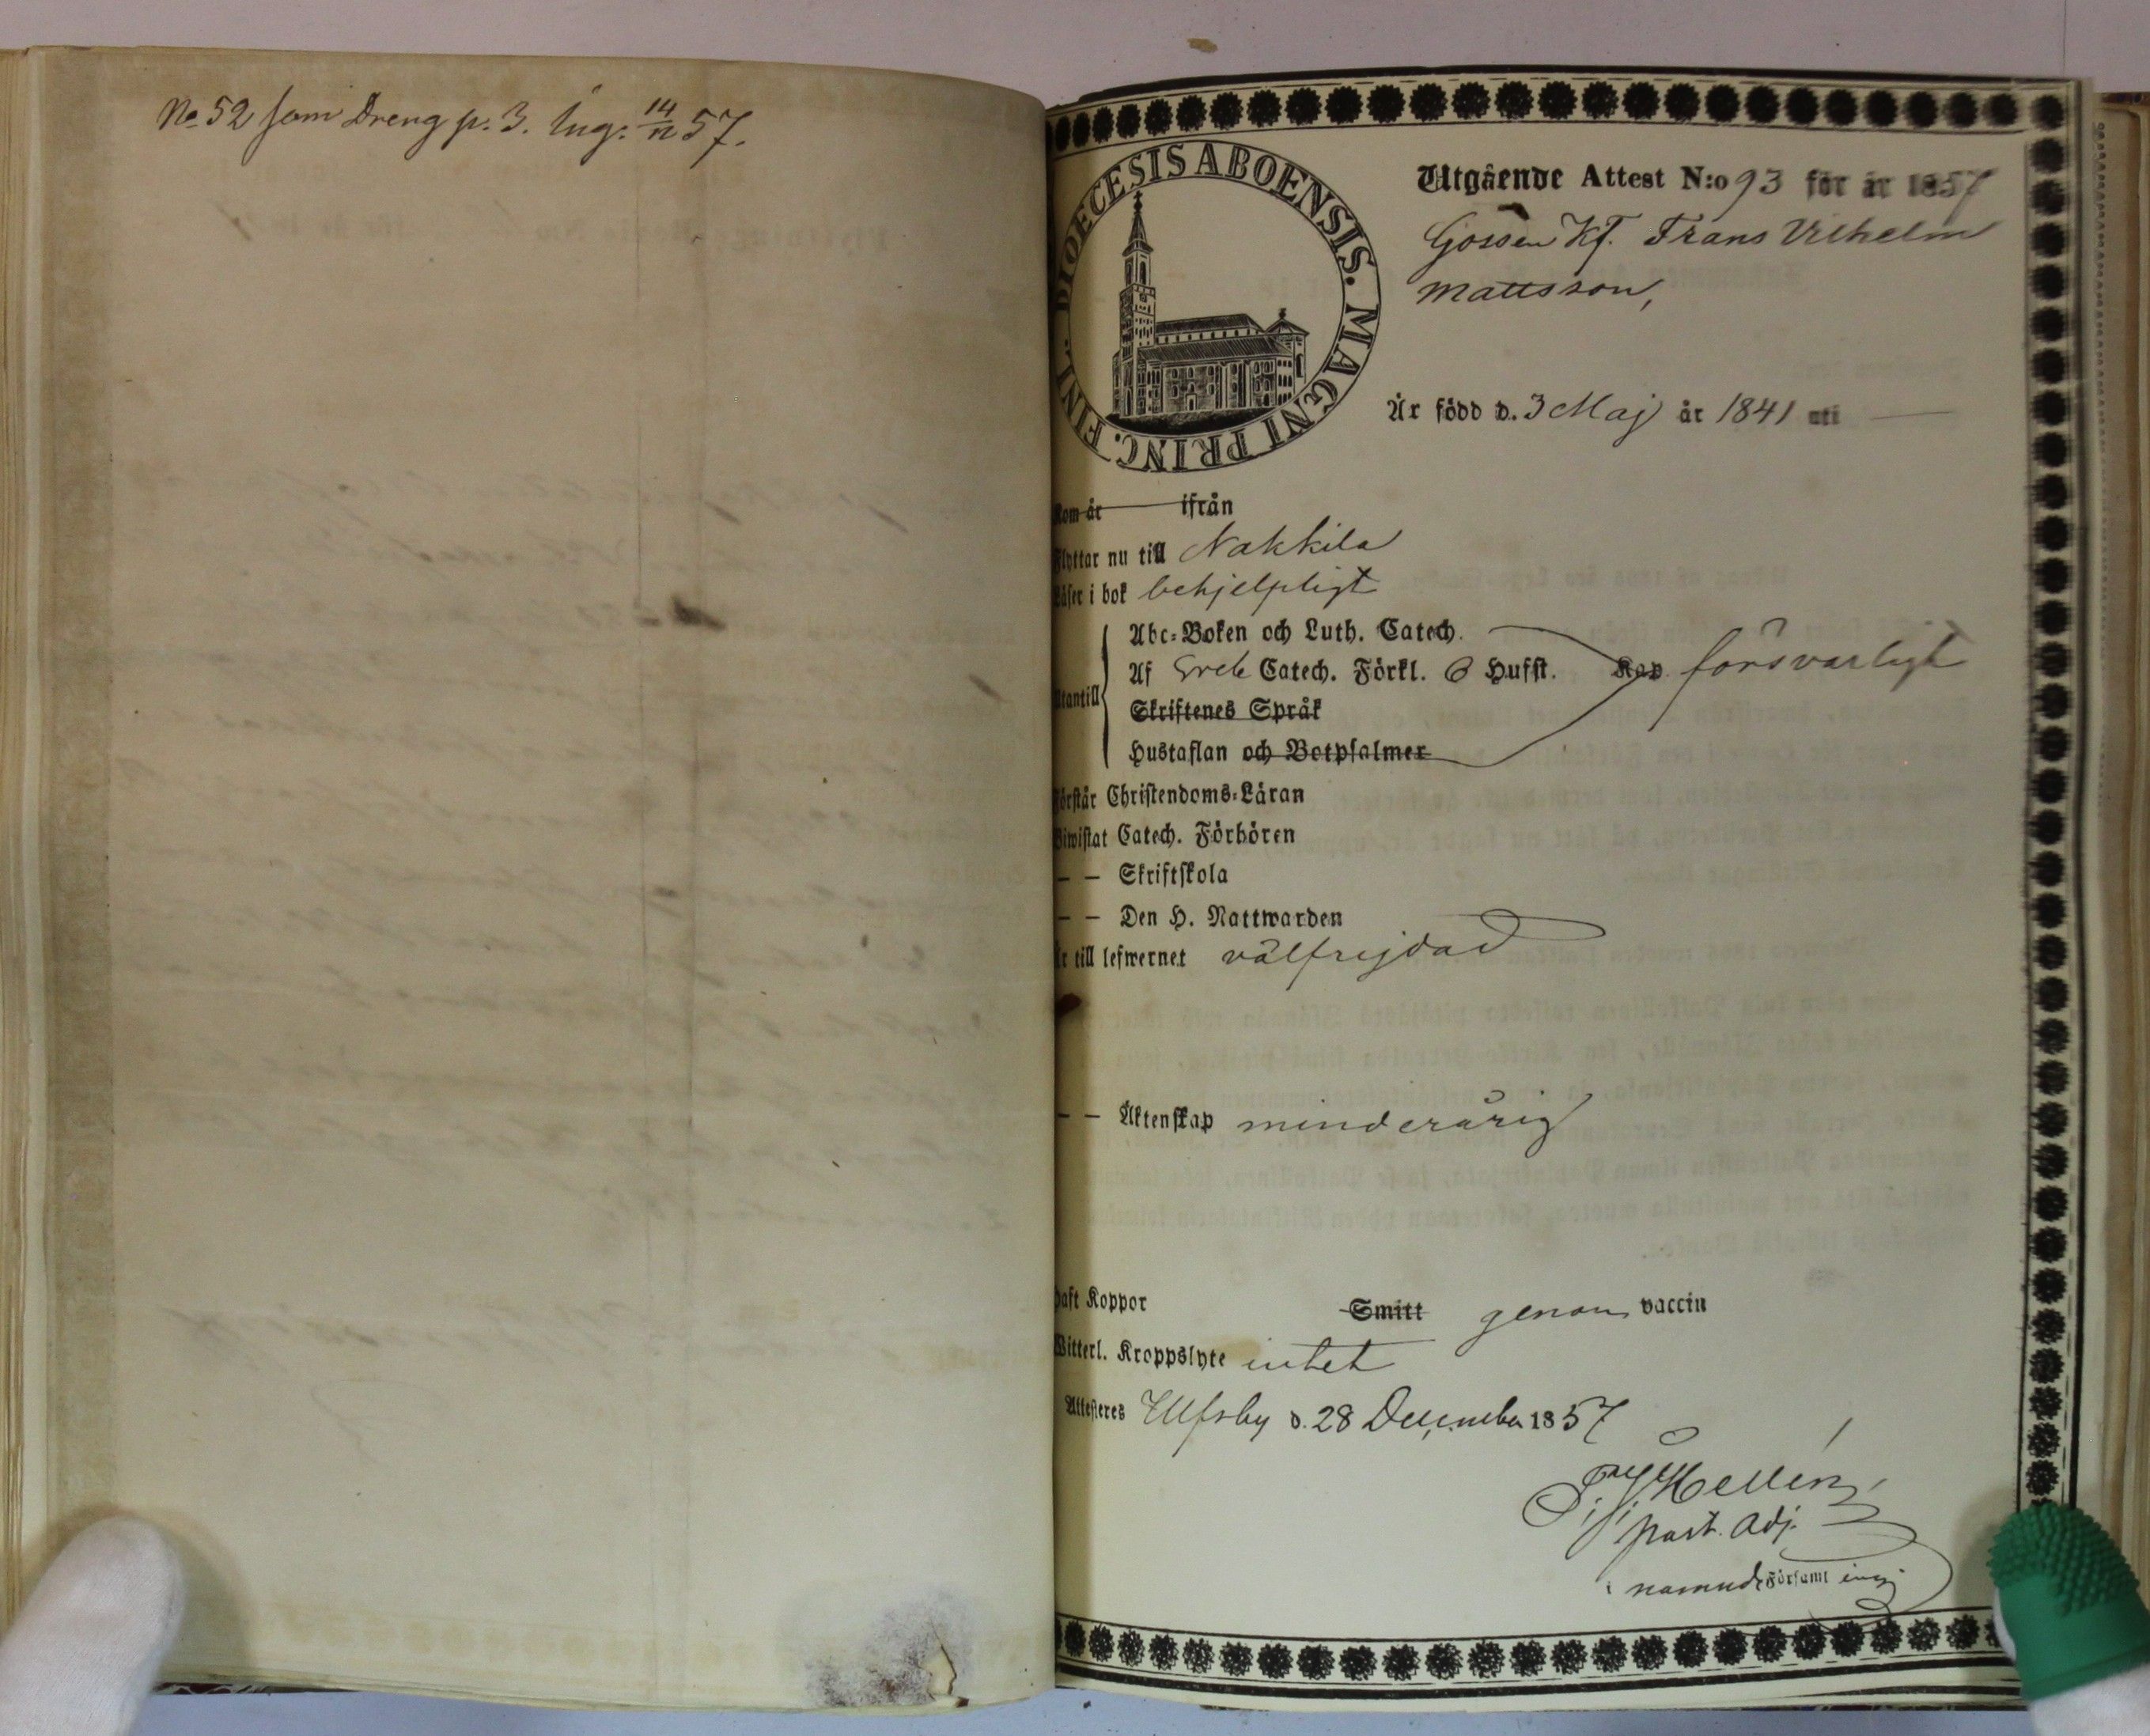 No 52 som Dreng p. 3. Ing. 14/n 57.
DIOECESIS ABOENSIS. MAGNI PRINC. FINL.
Utgående Attest N:o 93 för år 1857
Gossen Kf. Frans Vilhelm
Mattsson,
Är född d. 3 Maj år 1841 uti
Kom år ifrån
Flyttar nu till Nakkila
Läser i bok behjelpligt
Abc-Boken och Luth. Catech.
Utantill Af Sveb Catech. Förkl. 6 Hufst. Kap. försvarligt
Skriftenes Språk
Hustaflan och Botpsalmer
Förstår Christendoms-Läran
Biwistat Catech. Förhören
— — Skriftskola
— — Den H. Nattwarden
Är till lefwernet välfrejdad
— — Äktenskap minderårig
Haft Koppor Smitt genom vaccin
Witterl. Kroppslyte intet
Attesteres Ulfsby d. 28 December 1857
Hellén
past. adj.
i namnde Församl ing